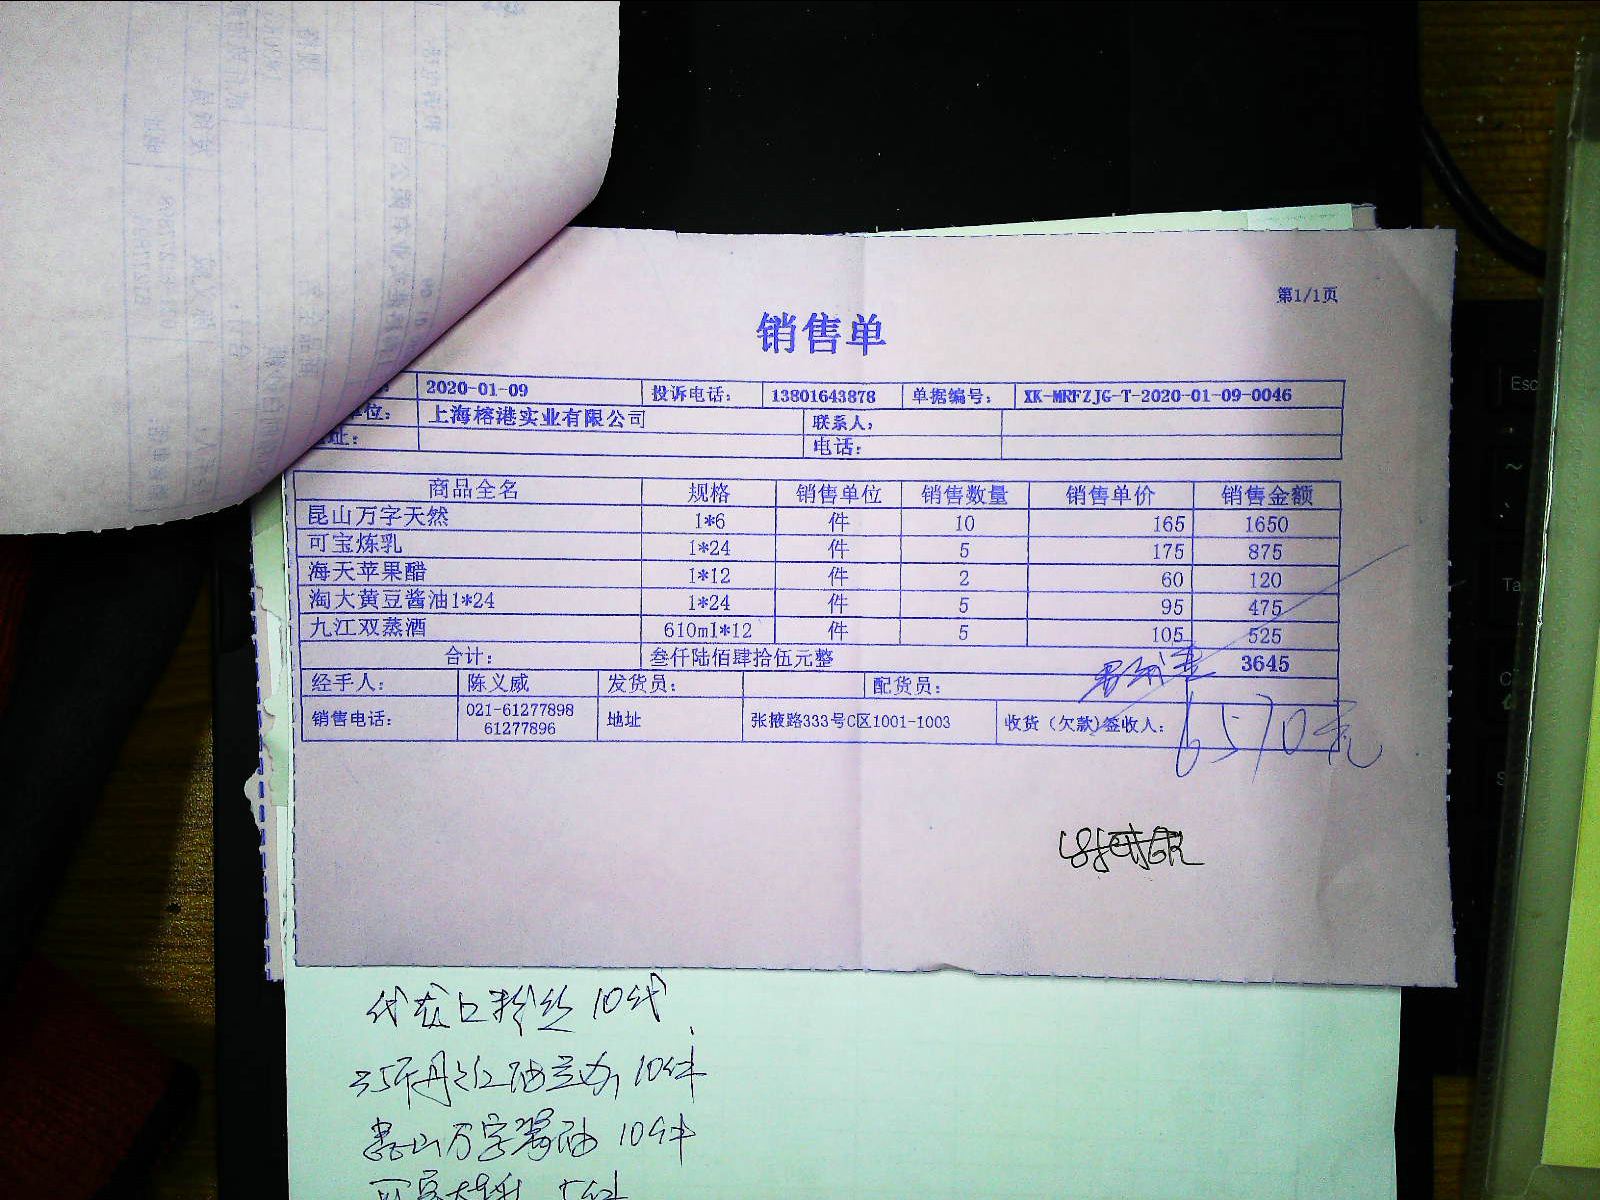 第1/1页
销售单
2020-01-09 投诉电话: 13801643878 单据编号: XK-MRFZJG-T-2020-01-09-0046
单位: 上海榕港实业有限公司 联系人:
址: 电话:
商品全名 规格 销售单位 销售数量 销售单价 销售金额
昆山万字天然 1*6 件 10 165 1650
可宝炼乳 1*24 件 5 175 875
海天苹果醋 1*12 件 2 60 120
淘大黄豆酱油1*24 1*24 件 5 95 475
九江双蒸酒 610ml*12 件 5 105 525
合计: 叁仟陆佰肆拾伍元整 3645
经手人: 陈义威 发货员: 配货员:
销售电话: 021-61277898 61277896 地址 张掖路333号C区1001-1003 收货(欠款)签收人:
6570元
龙口粉丝 10
10件
昆山万字酱油 10件
5件